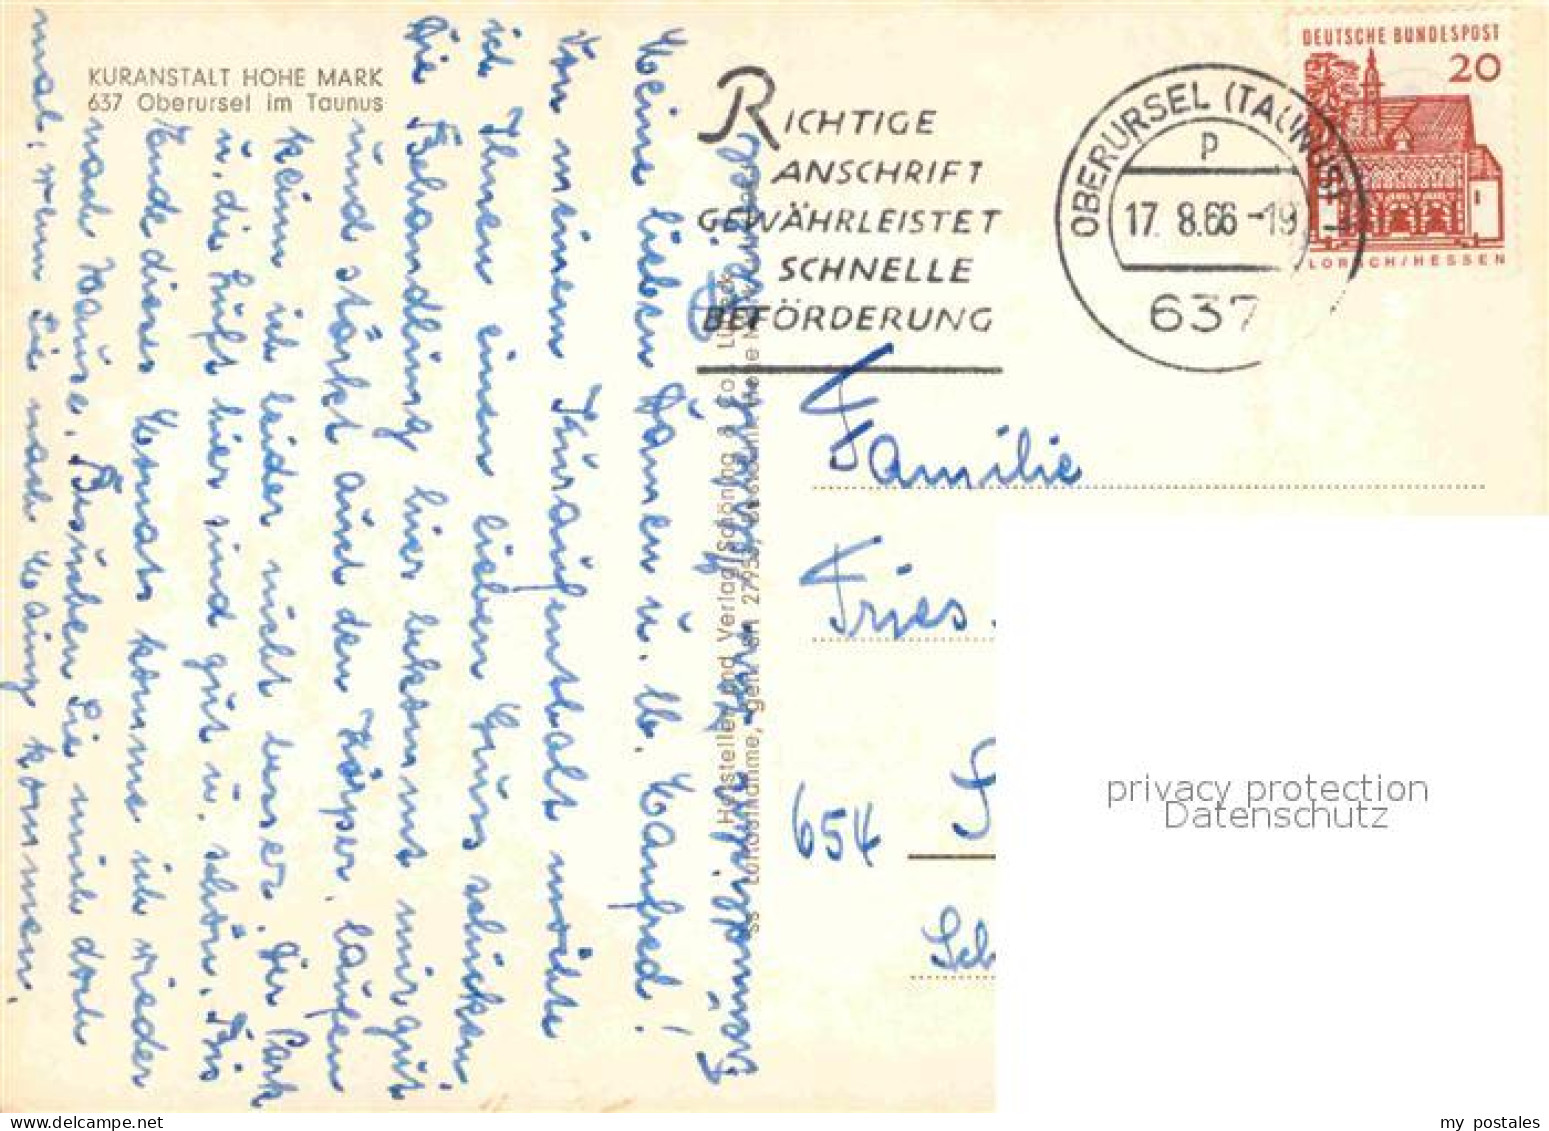 KURANSTALT HOHE MARK
637 Oberursel im Taunus
Meine lieben Damen u. M. Manfred!
Von meinem Kuraufenthalt möchte
ich Ihnen einen lieben Gruss schicken
Die Behandlung hier bekommt mir gut
und stärkt auch den Körper, laufen
kann ich leider nicht besser. Der Park
u. die Luft hier sind gut u. schön. Bis
Ende dieses Monats komme ich wieder
nach Hause. Besuchen Sie mich doch
mal, wenn Sie nach kommen.
Freundlichst Ihre
Hersteller und Verlag Schöning & Co., Lübeck
RICHTIGE
ANSCHRIFT
GEWÄHRLEISTET
SCHNELLE
BEFÖRDERUNG
OBERURSEL (TAUNUS)
p
17. 8.66-19
637
DEUTSCHE BUNDESPOST
20
LORSCH/HESSEN
Familie
Fries.
654 S
Sch
privacy protection
Datenschutz
my postales